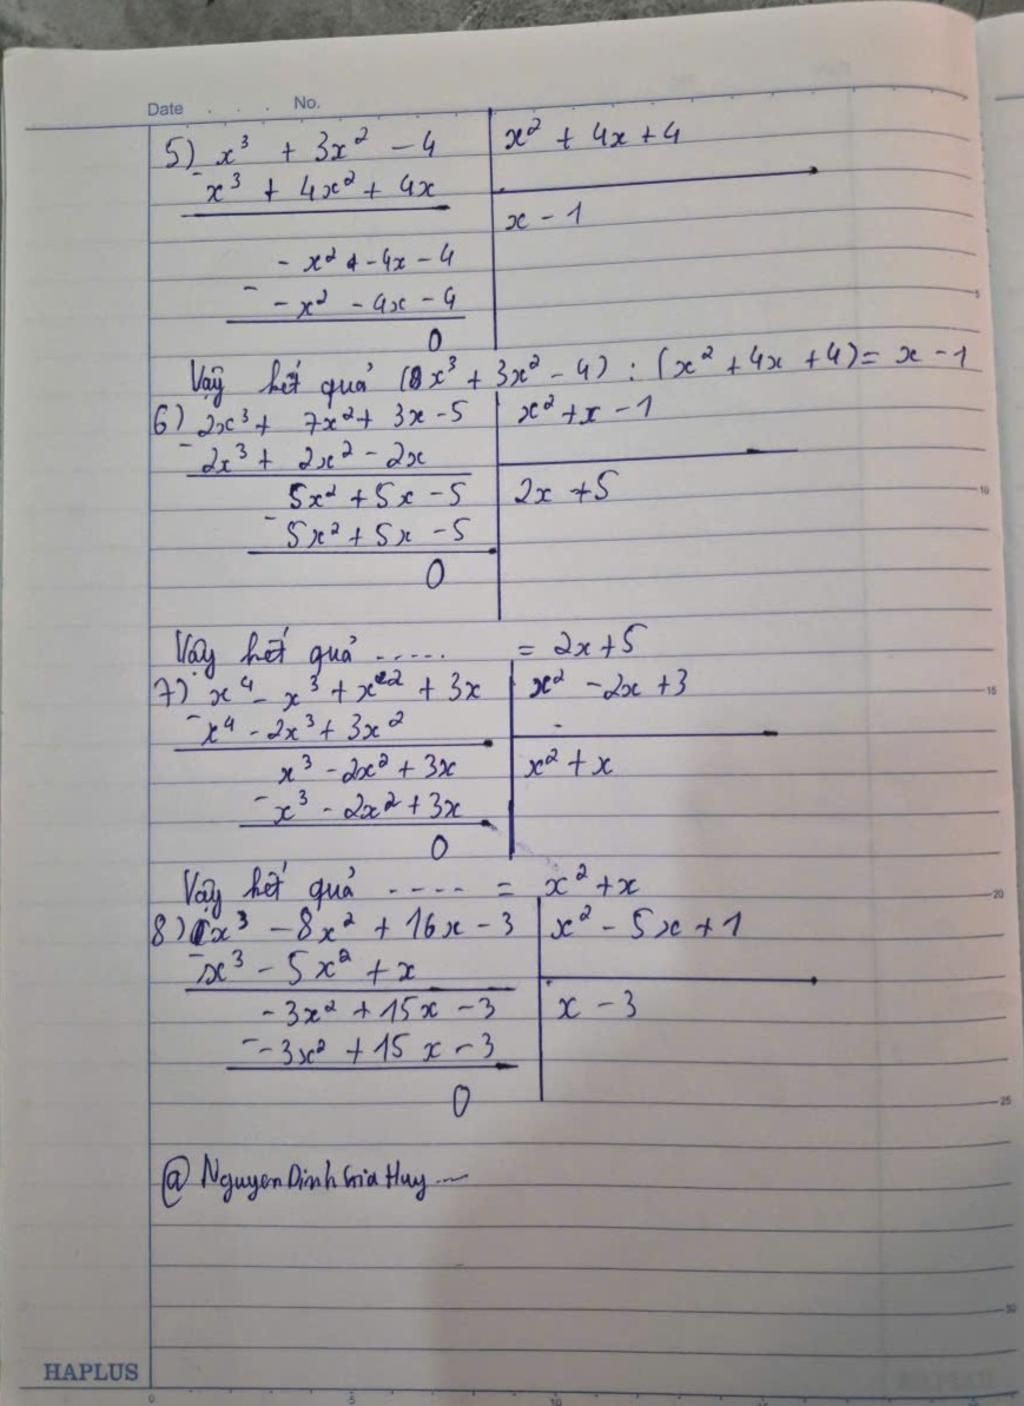 Date . . . No.
5) x³ + 3x² - 4 | x² + 4x + 4
- x³ + 4x² + 4x
x - 1
- x² - 4x - 4
- - x² - 4x - 4
0
Vậy kết quả (x³ + 3x² - 4) : (x² + 4x + 4) = x - 1
6) 2x³ + 7x² + 3x - 5 | x² + x - 1
- 2x³ + 2x² - 2x
5x² + 5x - 5 | 2x + 5
- 5x² + 5x - 5
0
Vậy kết quả ..... = 2x + 5
7) x⁴ - x³ + x² + 3x | x² - 2x + 3
- x⁴ - 2x³ + 3x²
x³ - 2x² + 3x | x² + x
- x³ - 2x² + 3x
0
Vậy kết quả ---- = x² + x
8) x³ - 8x² + 16x - 3 | x² - 5x + 1
- x³ - 5x² + x
- 3x² + 15x - 3 | x - 3
- - 3x² + 15x - 3
0
@ NguyenDinhGiaHuy ...
HAPLUS
5
10
15
20
25
30
0 5 10